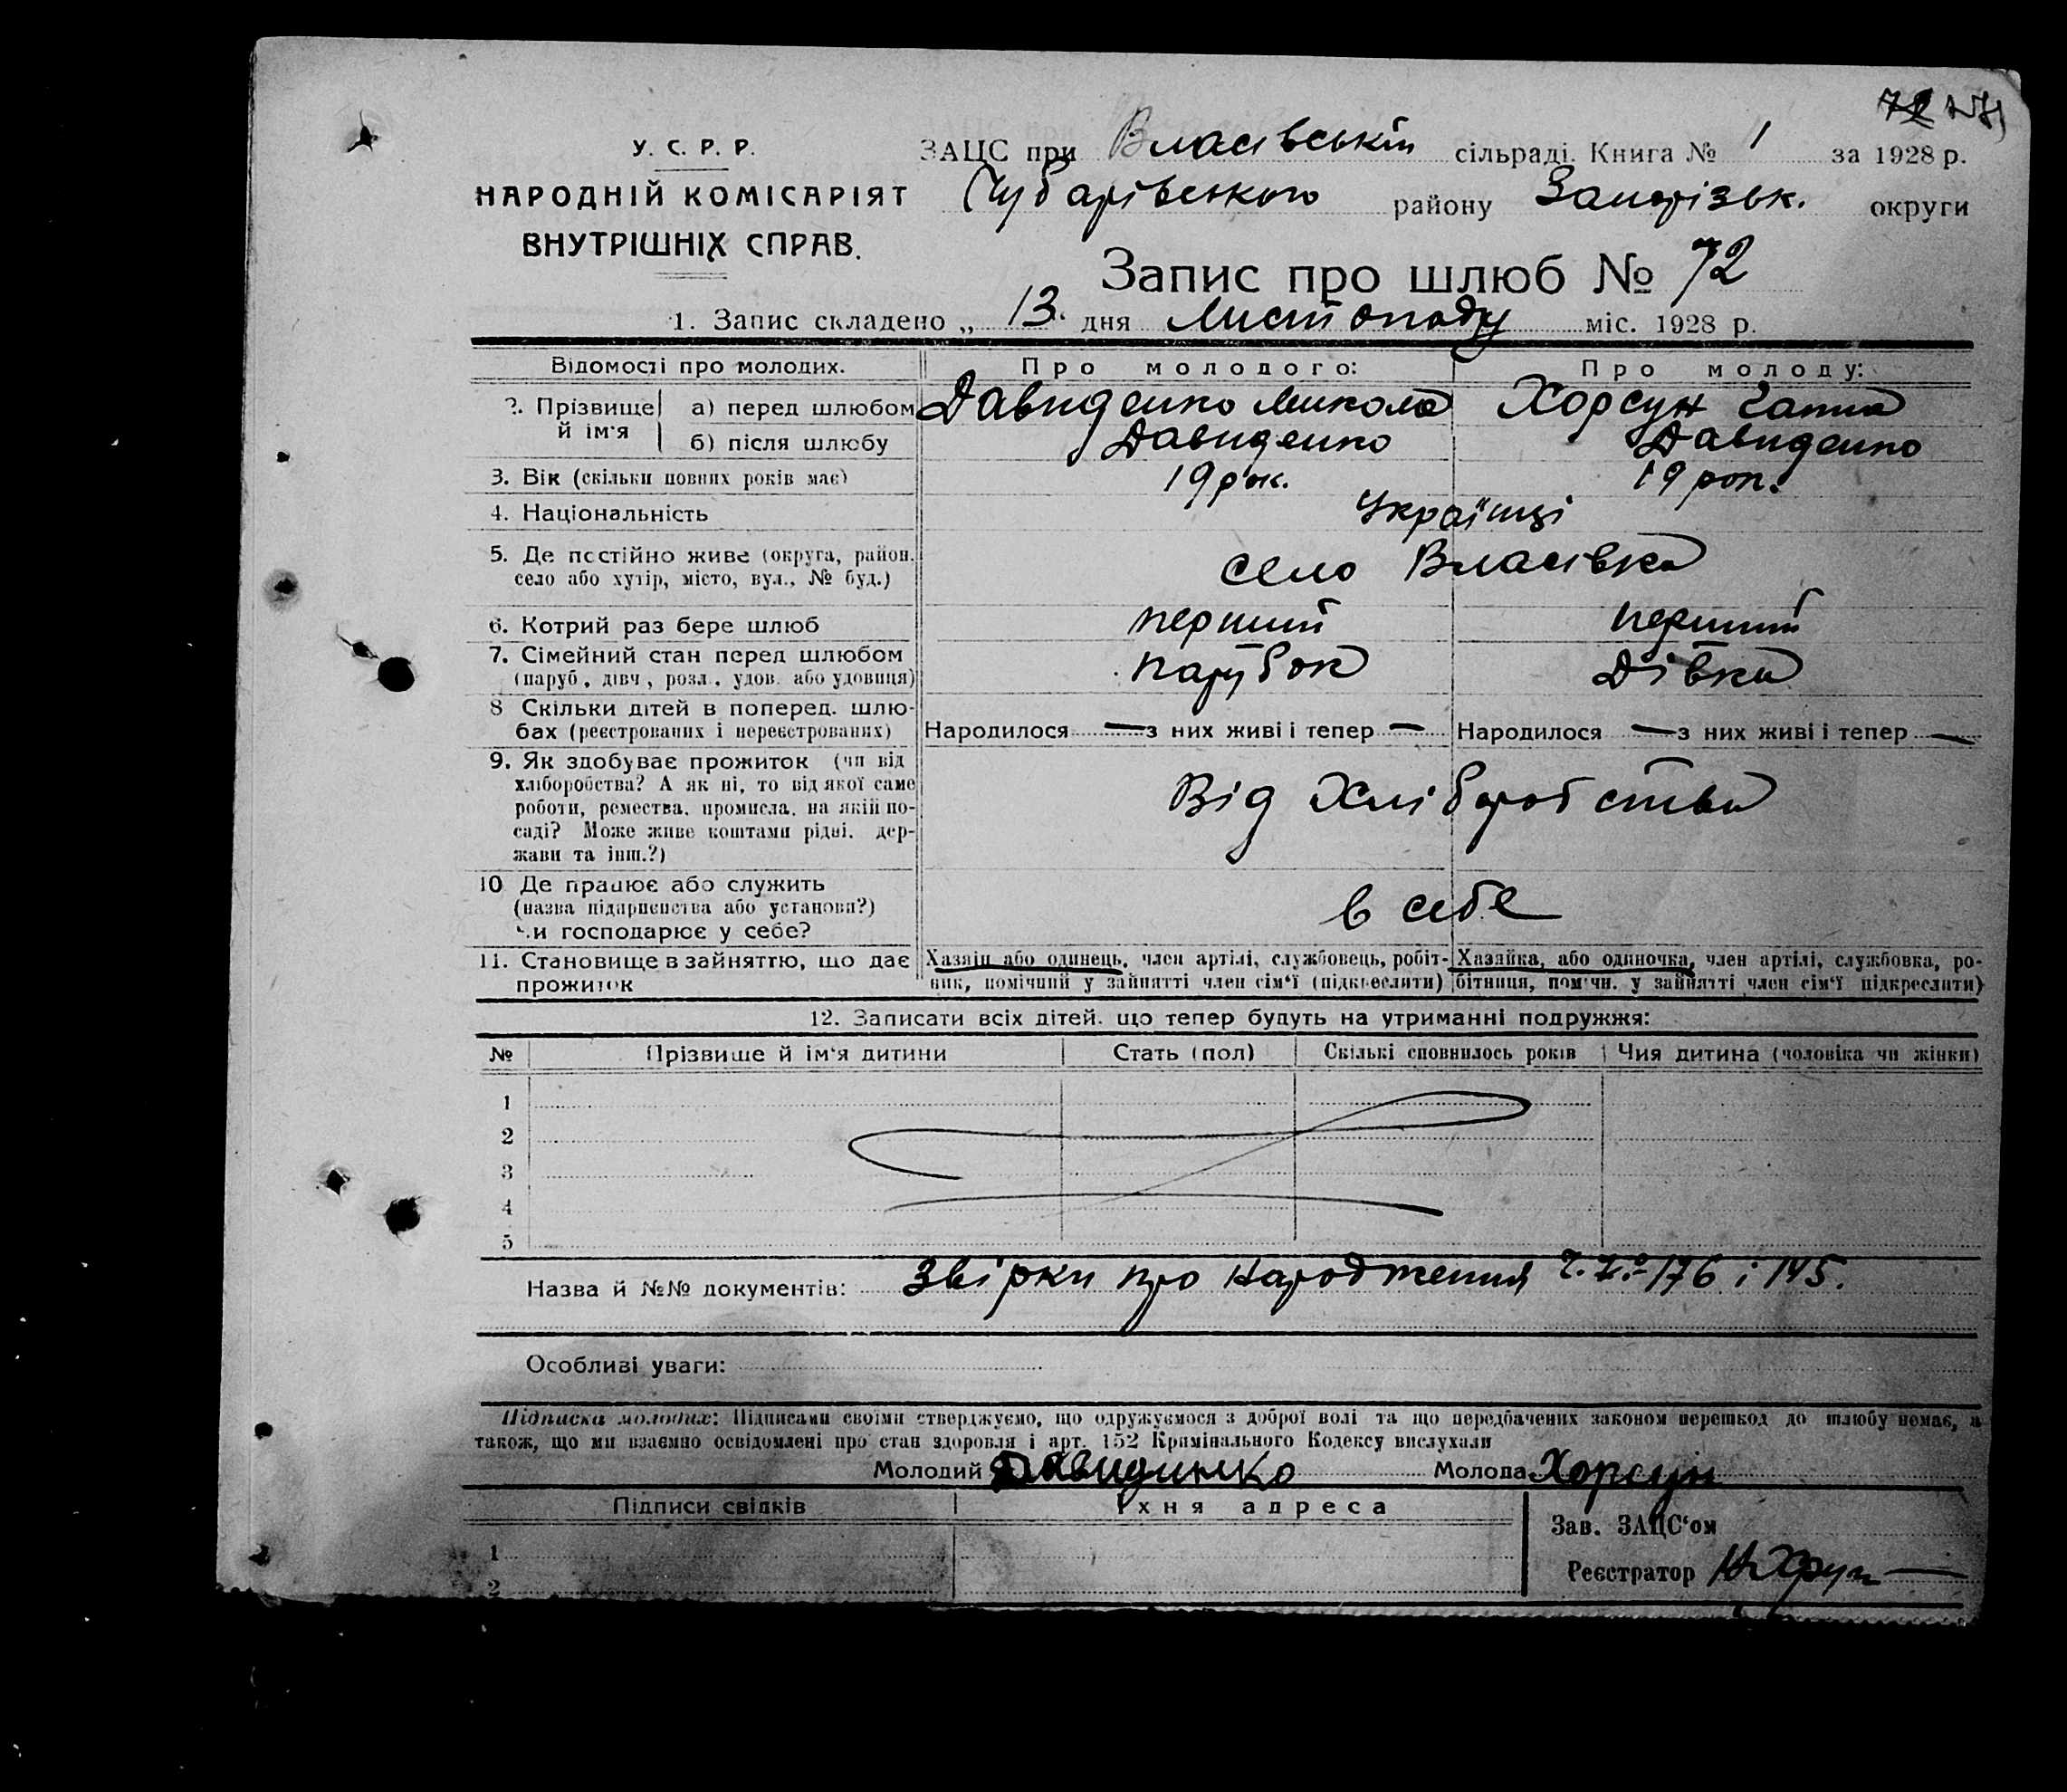 У. С. Р. Р.
НАРОДНІЙ КОМІСАРІЯТ
ВНУТРІШНІХ СПРАВ.
ЗАЦС при Власівській сільраді. Книга № 1 за 1928 р.
Чубарівського району Запорізьк. округи
Запис про шлюб № 72
1. Запис складено „ 13 дня Листопаду міс. 1928 р.
Відомості про молодих. Про молодого: Про молоду:
2. Прізвище й ім'я
а) перед шлюбом Давиденко Микола Хорсун Ганна
б) після шлюбу Давиденко Давиденко
3. Вік (скільки повних років має) 19 рок. 19 рок.
4. Національність Українці
5. Де постійно живе (округа, район, село або хутір, місто, вул., № буд.) село Власівка
6. Котрий раз бере шлюб перший перший
7. Сімейний стан перед шлюбом (паруб., дівч., розл., удов. або удовиця) парубок Дівка
8 Скільки дітей в поперед. шлюбах (реєстрованих і нереєстрованих) Народилося — з них живі і тепер — Народилося — з них живі і тепер —
9. Як здобуває прожиток (чи від хліборобства? А як ні, то від якої саме роботи, ремества, промисла, на якій посаді? Може живе коштами рідні, держави та інш.?) Від Хліборобства
10 Де працює або служить (назва підприємства або установи?) чи господарює у себе? в себе
11. Становище в зайняттю, що дає прожиток
Хазяїн або одинець, член артілі, службовець, робітник, помічний у зайнятті член сім'ї (підкреслити)
Хазяйка, або одиночка, член артілі, службовка, робітниця, помічн. у зайнятті член сім'ї підкреслити)
12. Записати всіх дітей. що тепер будуть на утриманні подружжя:
№ Прізвище й ім'я дитини Стать (пол) Скількі сповнилось років Чия дитина (чоловіка чи жінки)
1
2
3
4
5
Назва й №№ документів: Звірки про народження 176 і 145.
Особливі уваги:
Підписка молодих: Підписами своїми стверджуємо, що одружуємося з доброї волі та що передбачених законом перешкод до шлюбу немає, а
також, що ми взаємно освідомлені про стан здоровля і арт. 152 Кримінального Кодексу вислухали
Молодий Давидинко Молода Хорсун
Підписи свідків Їхня адреса
1
2
Зав. ЗАЦС'ом
Реєстратор